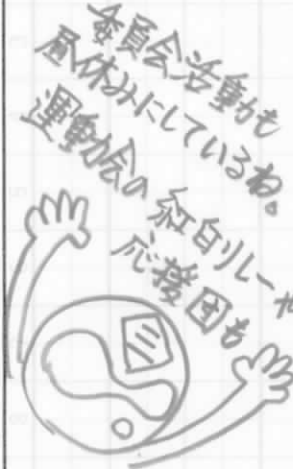 委員会活動も
昼休みにしているね。
運動会の紅白リレーや
応援団も